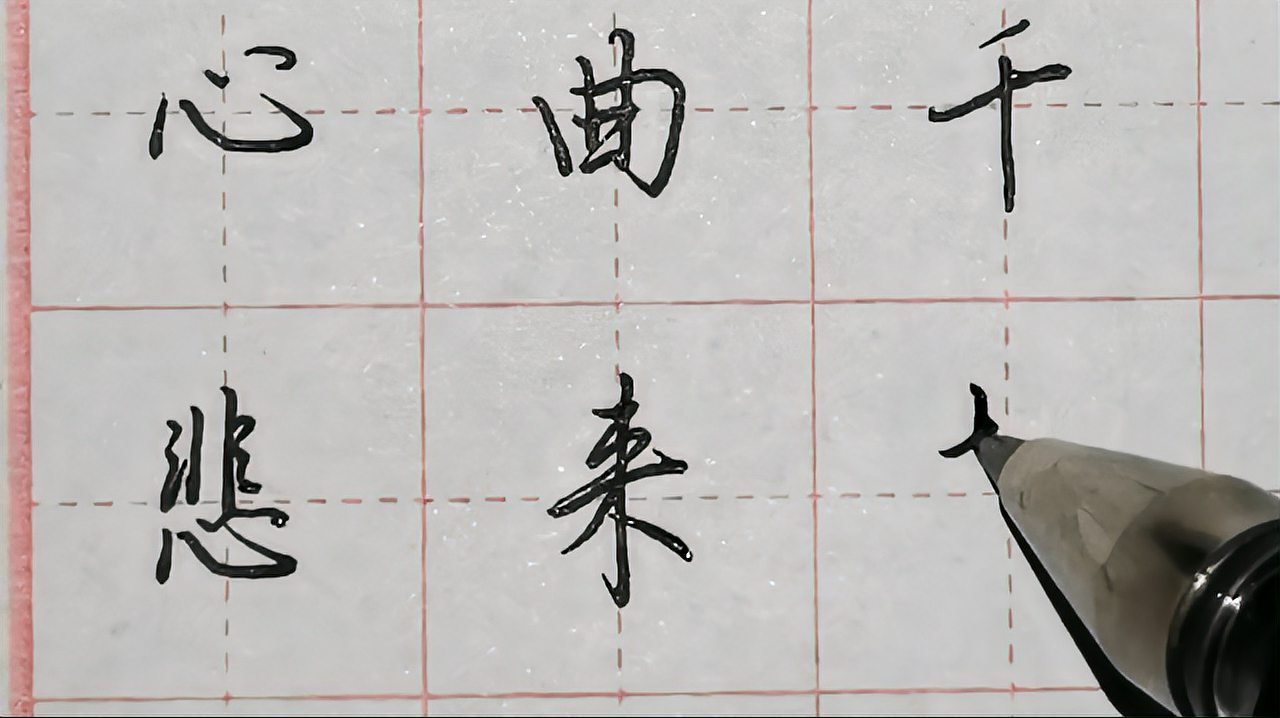 心曲千
悲来